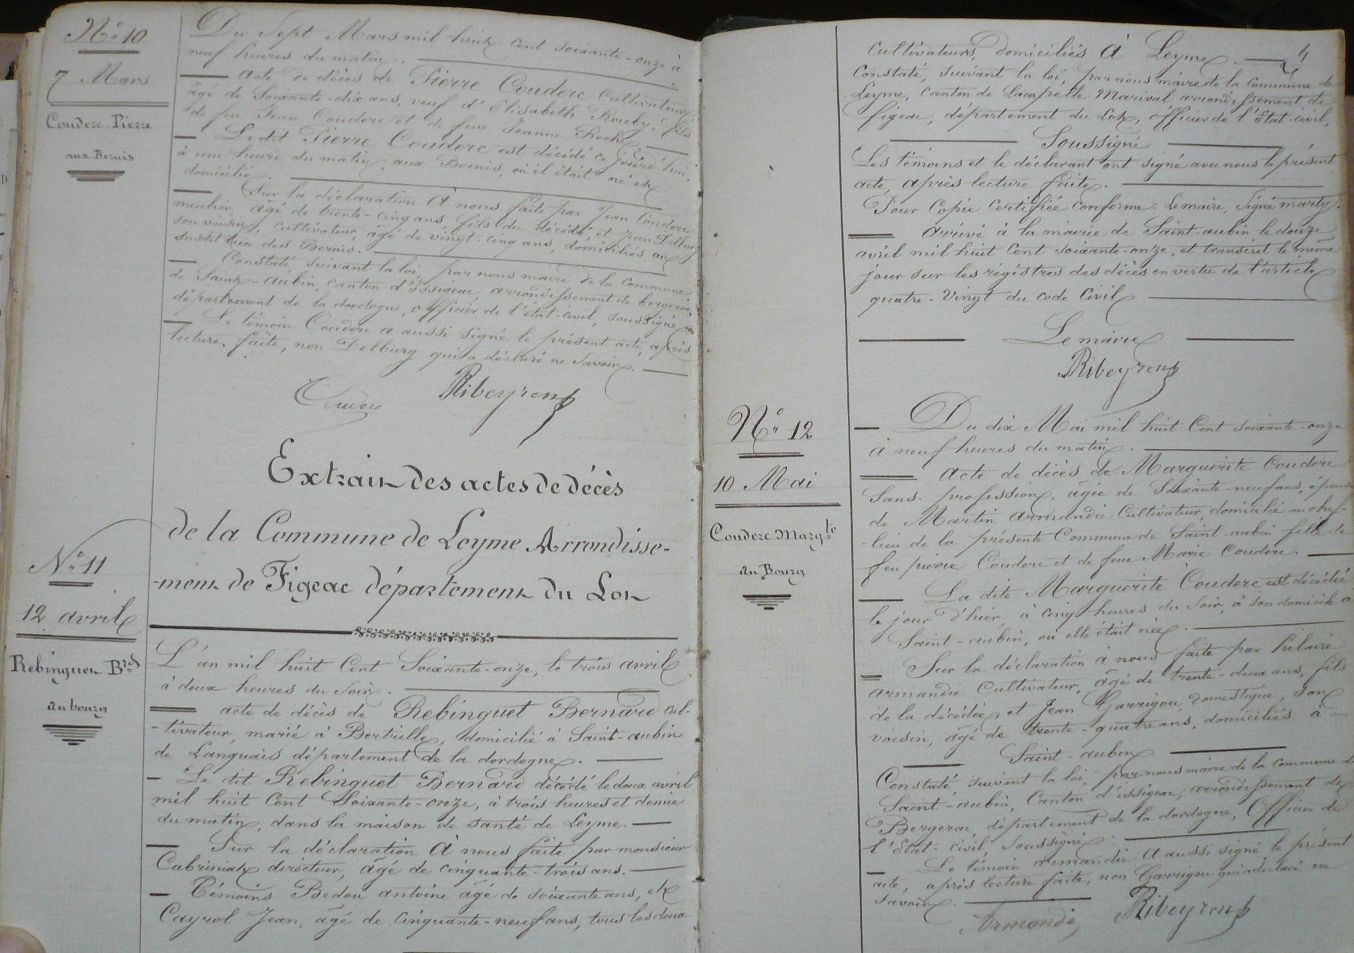 N° 10
7 Mars
Couderc Pierre
aux Bernis
Du Sept Mars mil huit cent soixante-onze à
neuf heures du matin.
acte de décès de Pierre Couderc Cultivateur,
âgé de Soixante-dix ans, veuf d'Elisabeth Rouby, fils
de feu Jean Couderc et de feu Jeanne
Le dit Pierre Couderc est décédé ce jourd'hui,
à une heure du matin, aux Bernis, où il était né et
domicilié.
Sur la déclaration à nous faite par Jean Couderc
meunier, âgé de trente-cinq ans, fils du décédé et Jean Delburg
son voisin, cultivateur, âgé de vingt-cinq ans, domiciliés au
susdit lieu des Bernis.
Constaté suivant la loi, par nous maire de la Commune
de Saint-aubin, canton d'issigeac, arrondissement de bergerac,
département de la dordogne, officier de l'état-civil, soussigné
Le témoin Couderc a aussi signé le présent acte, après
lecture faite, non Delburg qui a déclaré ne Savoir.
Couderc Ribeyren
Extrait des actes de décès
de la Commune de Leyme Arrondisse-
-ment de Figeac département du Lot
N° 11
12 avril
Rebinguet Brd
au bourg
L'an mil huit Cent Soixante-onze, le trois avril
à deux heures du Soir.
acte de décès de Rebinguet Bernard cul-
-tivateur, marié à Bertrille, domicilié à Saint-aubin
de Lanquais département de la dordogne.
Le dit Rebinguet Bernard décédé le deux avril
mil huit Cent Soixante-onze, à trois heures et demie
du matin, dans la maison de santé de Leyme.
Sur la déclaration à nous faite par monsieur
Cabriniat directeur, âgé de cinquante-trois ans.
Témoins Bedou antoine âgé de soixante ans, et
Cayrol Jean, âgé de Cinquante-neuf ans, tous les deux
4
Cultivateurs, domiciliés à Leyme.
Constaté, suivant la loi, par nous maire de la Commune de
Leyme, canton de Lacapelle Marival, arrondissement de
figeac, département du Lot, officier de l'Etat-civil,
Soussigné
Les témoins et le déclarant ont signé avec nous le présent
acte, après lecture faite.
Pour Copie Certifiée Conforme: Le maire, Signé marty
arrivé à la mairie de Saint-aubin le douze
avril mil huit Cent soixante-onze, et transcrit le même
jour sur les régistres des décès en vertu de l'article
quatre-vingt du code Civil
Le maire
Ribeyren
N° 12
10 Mai
Couderc Margte
au Bourg
Du dix Mai mil huit Cent soixante-onze
à neuf heures du matin.
acte de décès de Marguerite Couderc
Sans profession, âgée de Soixante-neuf ans, épouse
de Martin armandie Cultivateur domicilié au chef-
-lieu de la présente Commune de Saint-aubin fille de
feu pierre Couderc et de feue Marie Couderc.
La dite Marguerite Couderc est décédée
le jour d'hier, à cinq heures du Soir, à son domicile à
Saint-aubin, où elle était née.
Sur la déclaration à nous faite par hilaire
armandie Cultivateur, âgé de trente-deux ans, fils
de la décédée, et Jean Garrigou, domestique, Son
voisin, âgé de trente-quatre ans, domiciliés à
Saint-aubin
Constaté, suivant la loi, par nous maire de la Commune de
Saint-aubin, Canton d'issigeac, arrondissement de
Bergerac, département de la dordogne, Officier de
l'Etat-civil Soussigné
Le témoin armandie a aussi signé le présent
acte, après lecture faite, non Garrigou qui a déclaré ne
Savoir.
Armandie Ribeyren